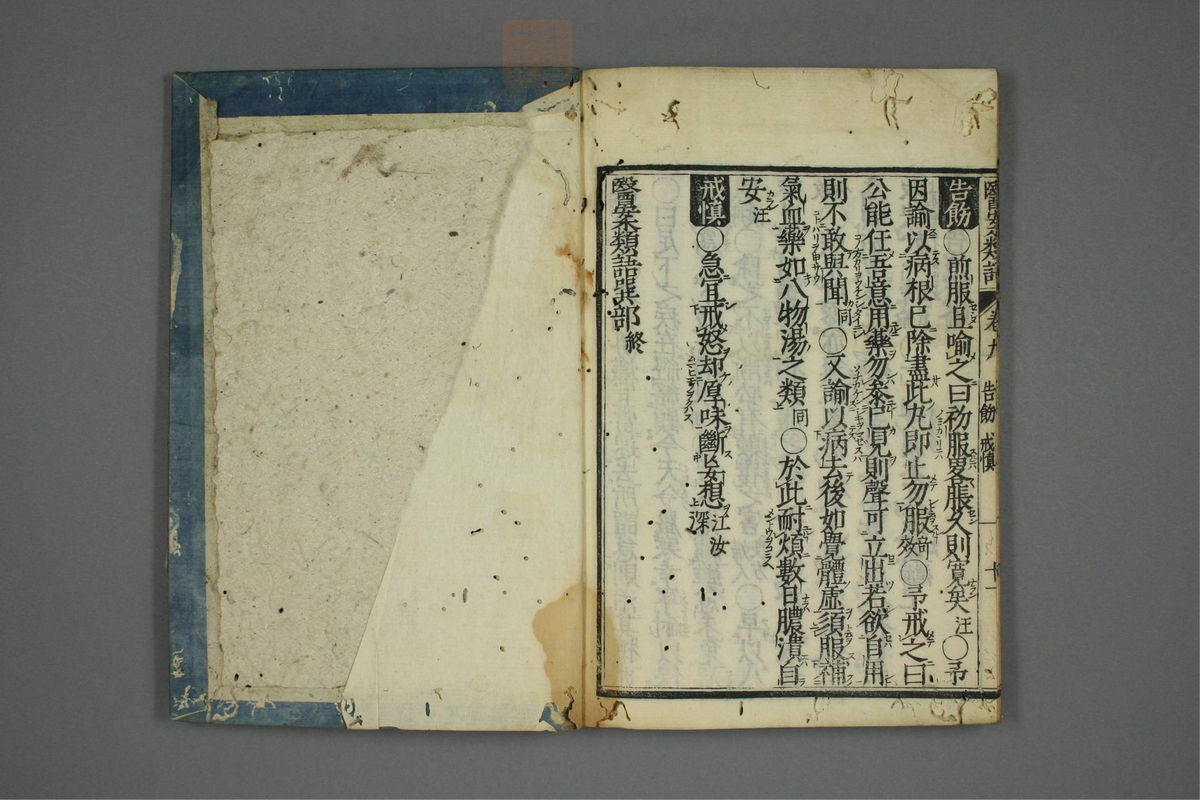 醫案類語 卷九 告飭 戒慎 十一
告飭 ○煎服且喻之曰初服畧脹久則寬矣 汪 ○予
因諭以病根已除盡此丸即止勿服 奇效 ○予戒之曰
公能任吾意用藥勿參已見則聲可立出若欲自用
則不敢與聞 同 ○又諭以病去後如覺體虛須服補
氣血藥如八物湯之類 同 ○於此耐煩數日膿潰自
安 汪
戒慎 ○急宜戒怒却厚味斷妄想 江汝深
醫案類語巽部 終